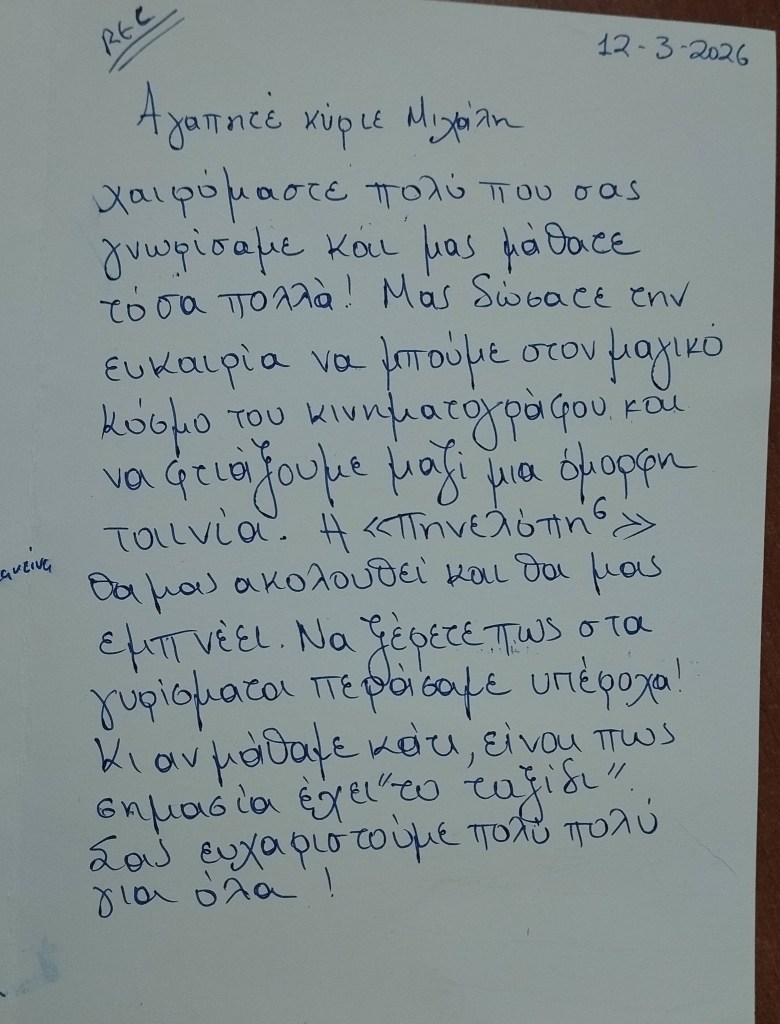 REC
12-3-2026
Αγαπητέ κύριε Μιχάλη
χαιρόμαστε πολύ που σας
γνωρίσαμε και μας μάθατε
τόσα πολλά! Μας δώσατε την
ευκαιρία να μπούμε στον μαγικό
κόσμο του κινηματογράφου και
να φτιάξουμε μαζί μια όμορφη
ταινία. Η «Πηνελόπη⁶»
θα μας ακολουθεί και θα μας
εμπνέει. Να ξέρετε πως στα
γυρίσματα περάσαμε υπέροχα!
Κι αν μάθαμε κάτι, είναι πως
σημασία έχει "το ταξίδι".
Σας ευχαριστούμε πολύ πολύ
για όλα !